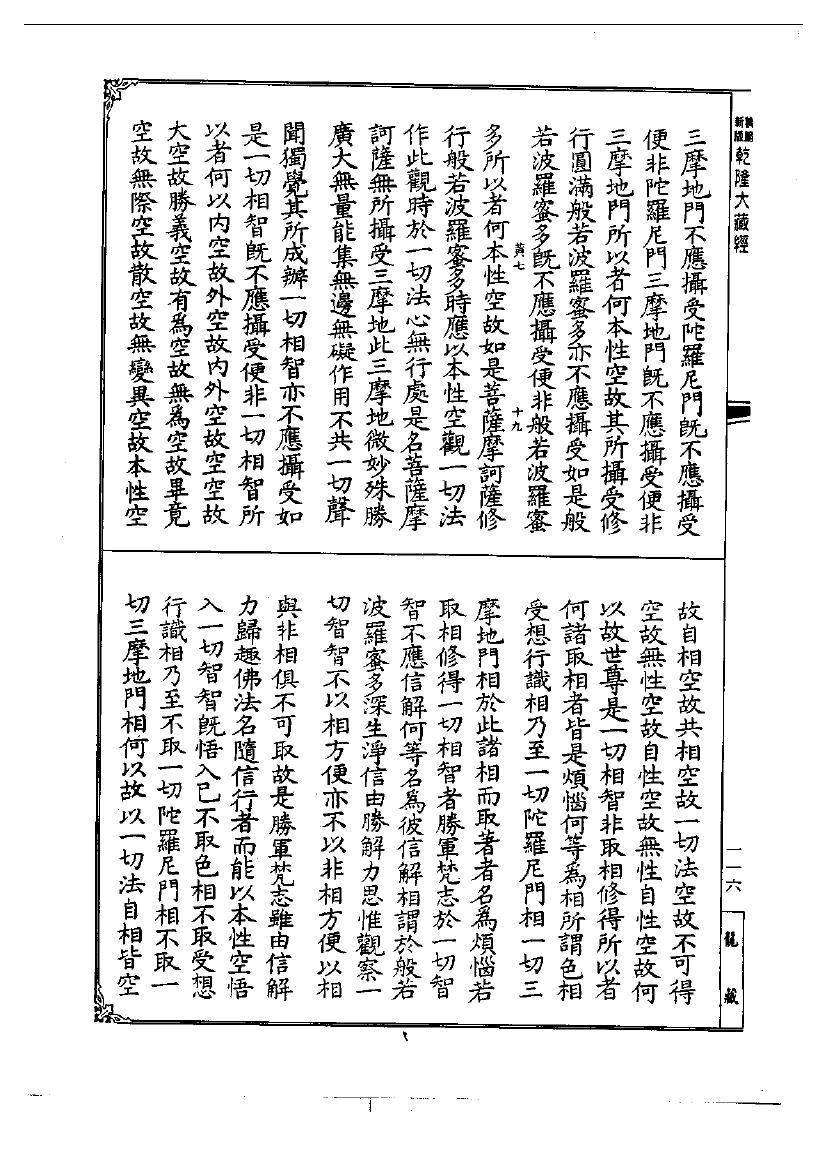 三摩地門不應攝受陀羅尼門既不應攝受
便非陀羅尼門三摩地門既不應攝受便非
三摩地門所以者何本性空故其所攝受修
行圓滿般若波羅蜜多亦不應攝受如是般
若波羅蜜多既不應攝受便非般若波羅蜜
黃七
十九
多所以者何本性空故如是菩薩摩訶薩修
行般若波羅蜜多時應以本性空觀一切法
作此觀時於一切法心無行處是名菩薩摩
訶薩無所攝受三摩地此三摩地微妙殊勝
廣大無量能集無邊無礙作用不共一切聲
聞獨覺其所成辦一切相智亦不應攝受如
是一切相智既不應攝受便非一切相智所
以者何以內空故外空故內外空故空空故
大空故勝義空故有為空故無為空故畢竟
空故無際空故散空故無變異空故本性空
故自相空故共相空故一切法空故不可得
空故無性空故自性空故無性自性空故何
以故世尊是一切相智非取相修得所以者
何諸取相者皆是煩惱何等為相所謂色相
受想行識相乃至一切陀羅尼門相一切三
摩地門相於此諸相而取著者名為煩惱若
取相修得一切相智者勝軍梵志於一切智
智不應信解何等名為彼信解相謂於般若
波羅蜜多深生淨信由勝解力思惟觀察一
切智智不以相方便亦不以非相方便以相
與非相俱不可取故是勝軍梵志雖由信解
力歸趣佛法名隨信行者而能以本性空悟
入一切智智既悟入已不取色相不取受想
行識相乃至不取一切陀羅尼門相不取一
切三摩地門相何以故以一切法自相皆空
新版
乾隆大藏經
一一六
龍藏